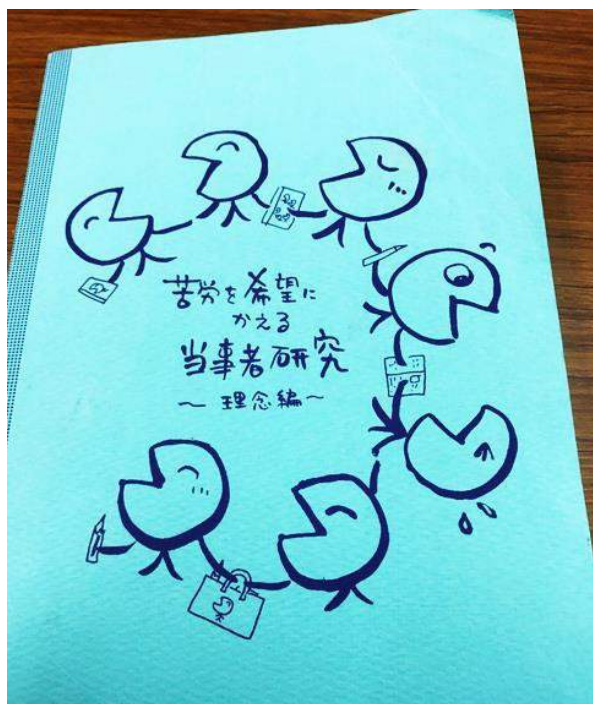 苦労を希望に
かえる
当事者研究
～理念編～